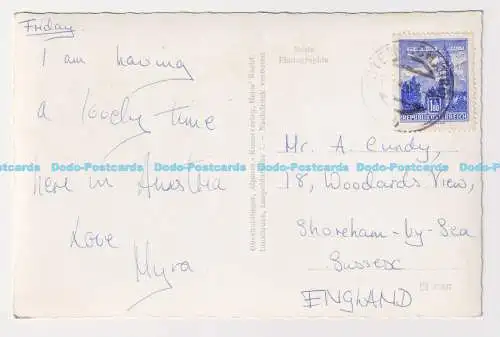 Friday.
I am having
a lovely time
here in Austria
Love
Myra
Echte
Photographie
REPUBLIK ÖSTERREICH
Mr. A. Cundy,
18, Woodards View,
Shoreham-by-Sea
Sussex
ENGLAND
Dodo-Postcards Dodo-Postcards Dodo-Postcards Dodo-Postcards Dodo-Postcards